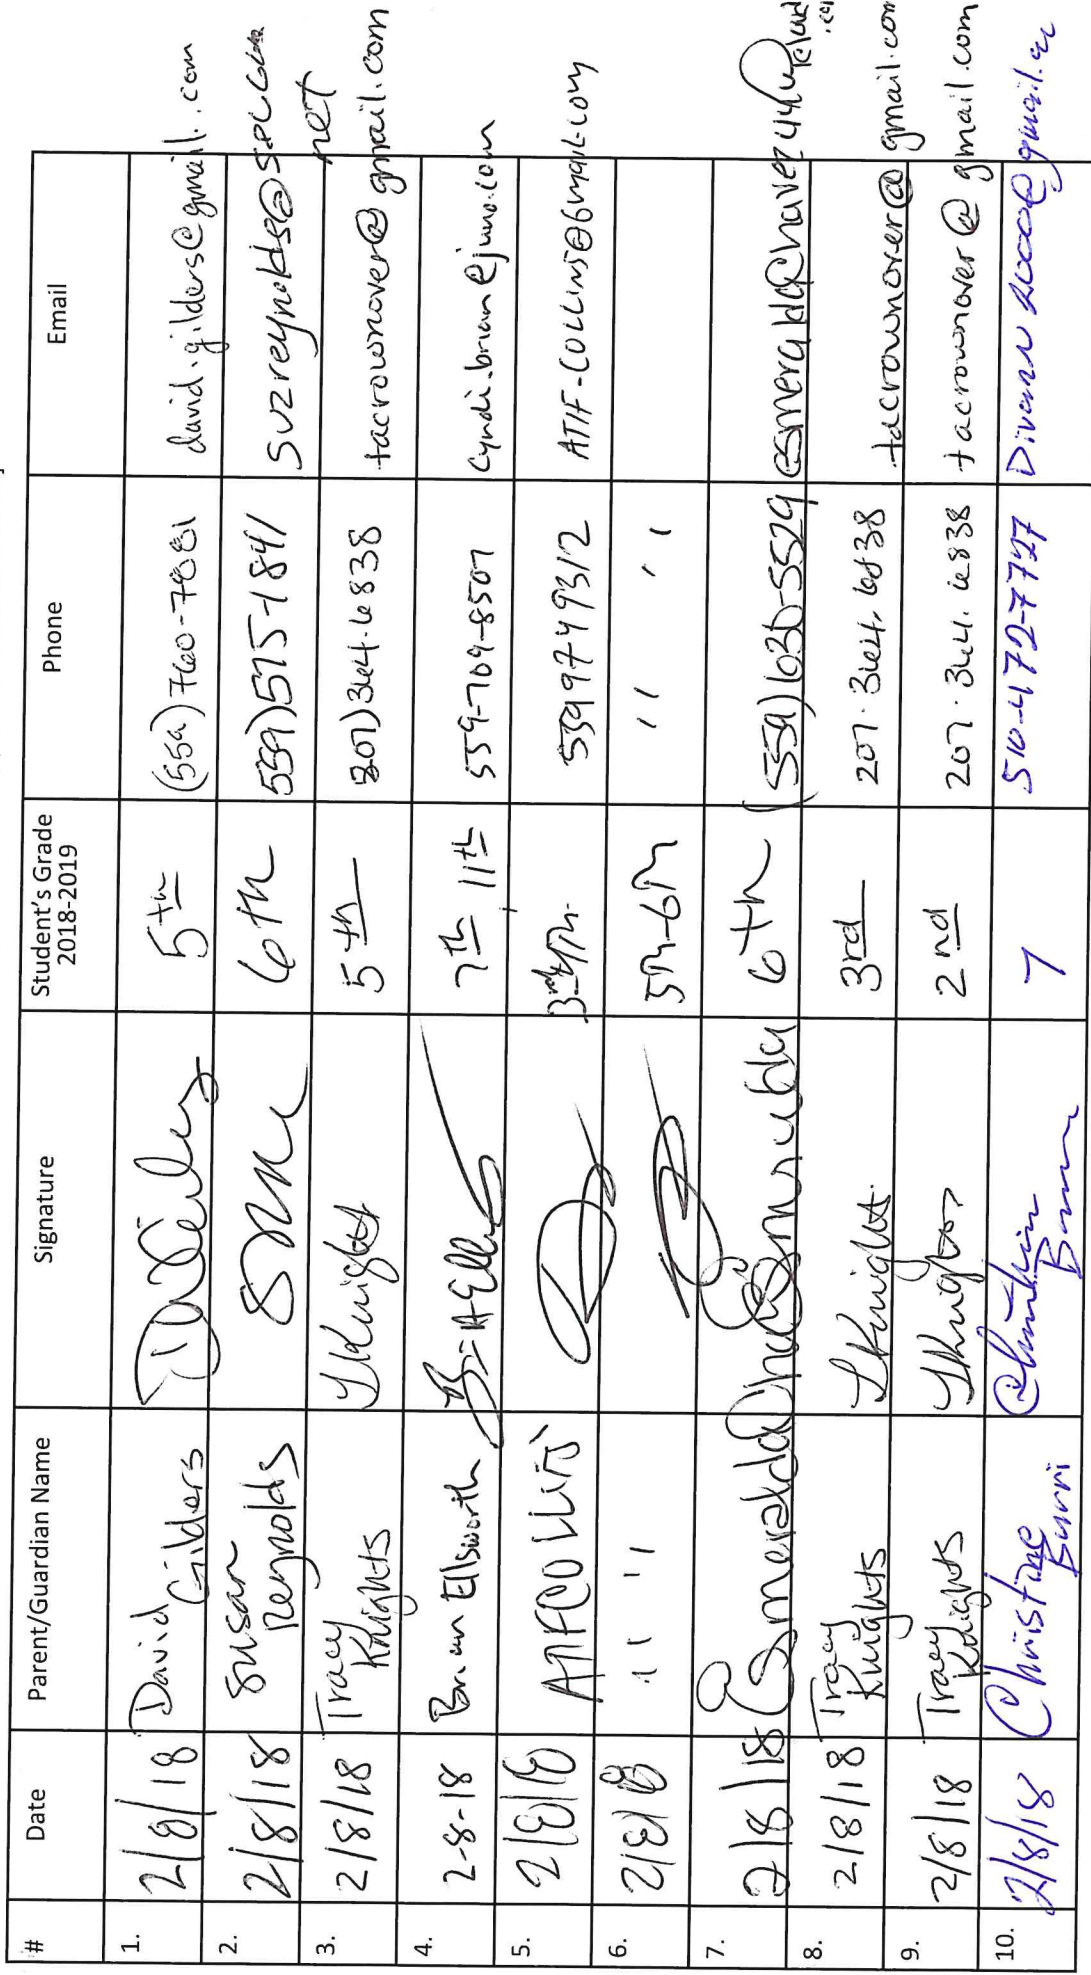 # Date Parent/Guardian Name Signature Student's Grade 2018-2019 Phone Email
1. 2/8/18 David Gilders 5th (559) 760-7881 david.gilders@gmail.com
2. 2/8/18 Susan Reynolds 6th 559) 575-1841 suzreynolds@ net
3. 2/8/18 Tracy Knights TKnights 5th 207) 364.6838 tacrownover@gmail.com
4. 2-8-18 Brian Ellsworth 7th 11th 559-709-8507 cyndi.brian@juno.com
5. 2/8/18 ATIF COLLINS 3rd 559 974 9312 ATIF-COLLINS@GMAIL.COM
6. 2/8/18 " " 5th-6th " "
7. 2/8/18 Esmeralda 6th (559) 636-5529
8. 2/8/18 Tracy Knights TKnights 3rd 207.364.6838 tacrownover@gmail.com
9. 2/8/18 Tracy Knights TKnights 2nd 207.364.6838 tacrownover@gmail.com
10. 2/8/18 Christine Burri 7 510-472-7727